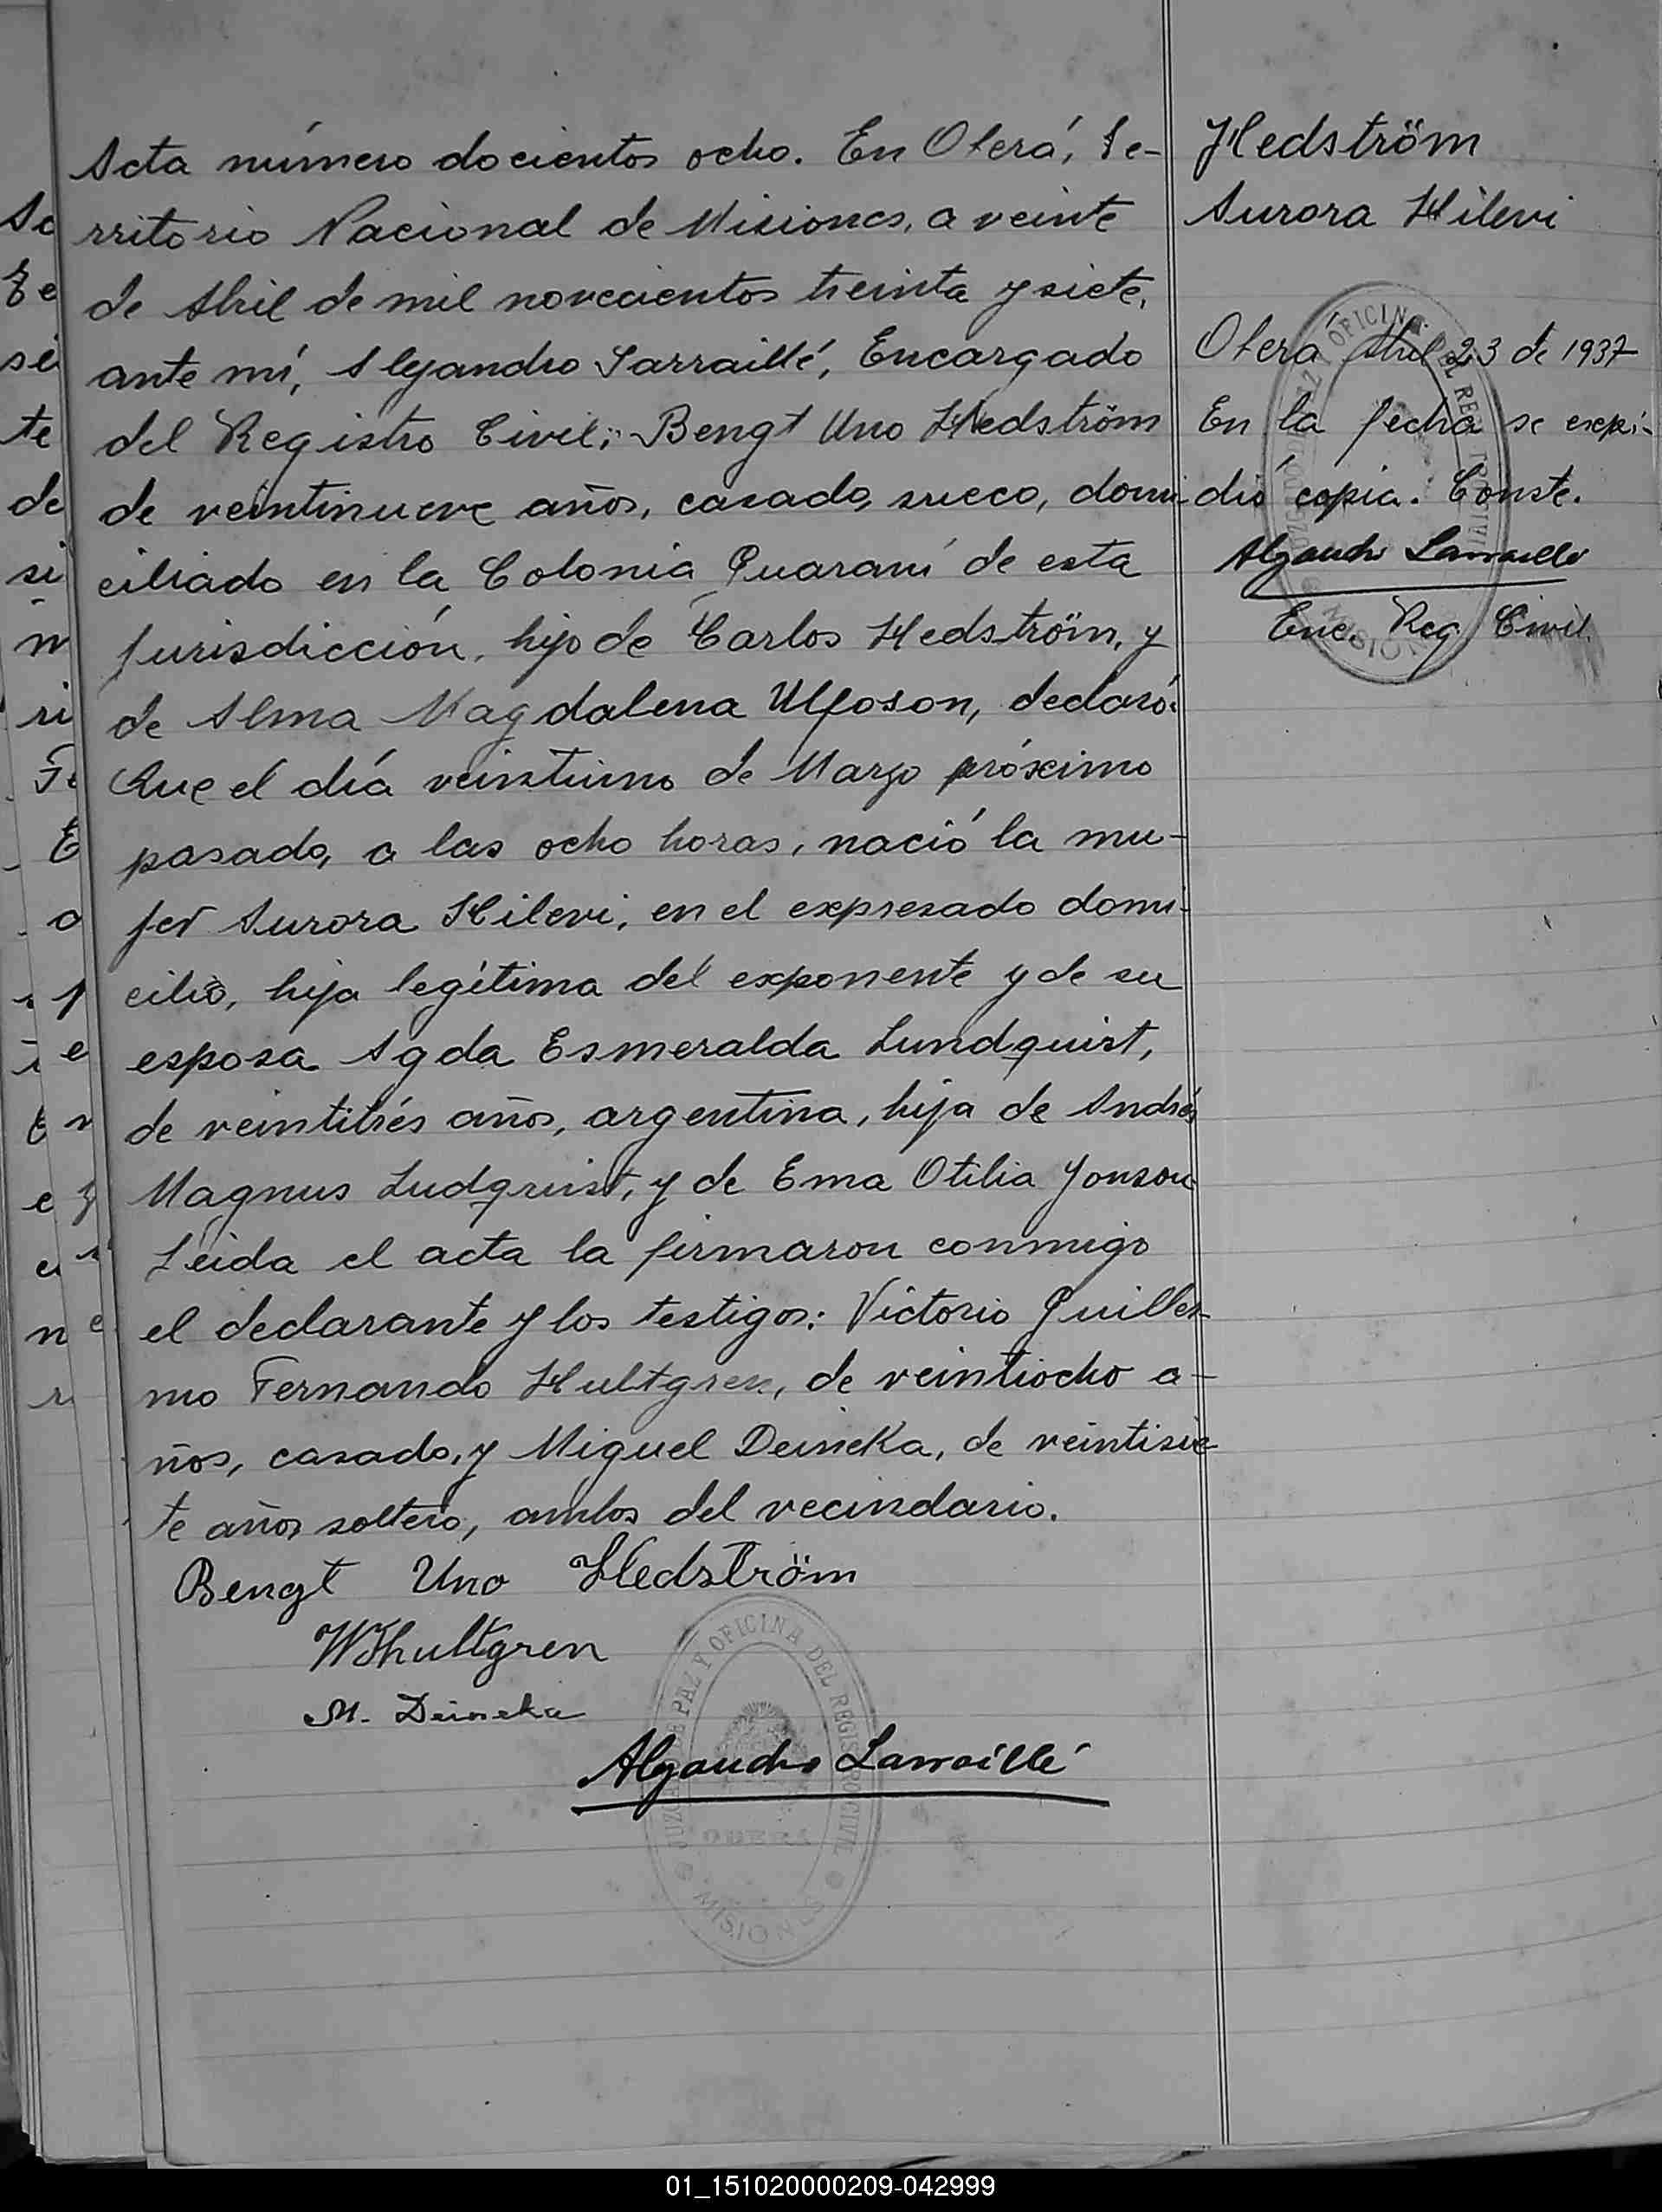 Acta número docientos ocho. En Oberá, Te-
rritorio Nacional de Misiones, a veinte
de Abril de mil novecientos treinta y siete,
ante mí, Alejandro Larraillé, Encargado
del Registro Civil; Bengt Uno Hedström
de veintinueve años, casado, sueco, domi-
ciliado en la Colonia Guaraní de esta
jurisdicción, hijo de Carlos Hedström, y
de Alma Magdalena Ulfoson, declaró:
Que el día veintiuno de Marzo próximo
pasado, a las ocho horas, nació la mu-
jer Aurora Hilevi, en el expresado domi-
cilio, hija legítima del exponente y de su
esposa Agda Esmeralda Lundquist,
de veintitrés años, argentina, hija de Andrés
Magnus Ludquist, y de Ema Otilia Jonson
Leida el acta la firmaron conmigo
el declarante y los testigos: Victorio Guiller-
mo Fernando Hultgren, de veintiocho a-
ños, casado, y Miguel Deineka, de veintisie-
te años soltero, ambos del vecindario.
Bengt Uno Hedström
WHhultgren
M. Deineka
Alejandro Larraillé
JUZGADO DE PAZ Y OFICINA DEL REGISTRO CIVIL
OBERA
MISIONES
Hedström
Aurora Hilevi
Oberá Abril 23 de 1937
En la fecha se expi-
dió copia. Conste.
Alejandro Larraillé
Enc. Reg. Civil.
01_151020000209-042999